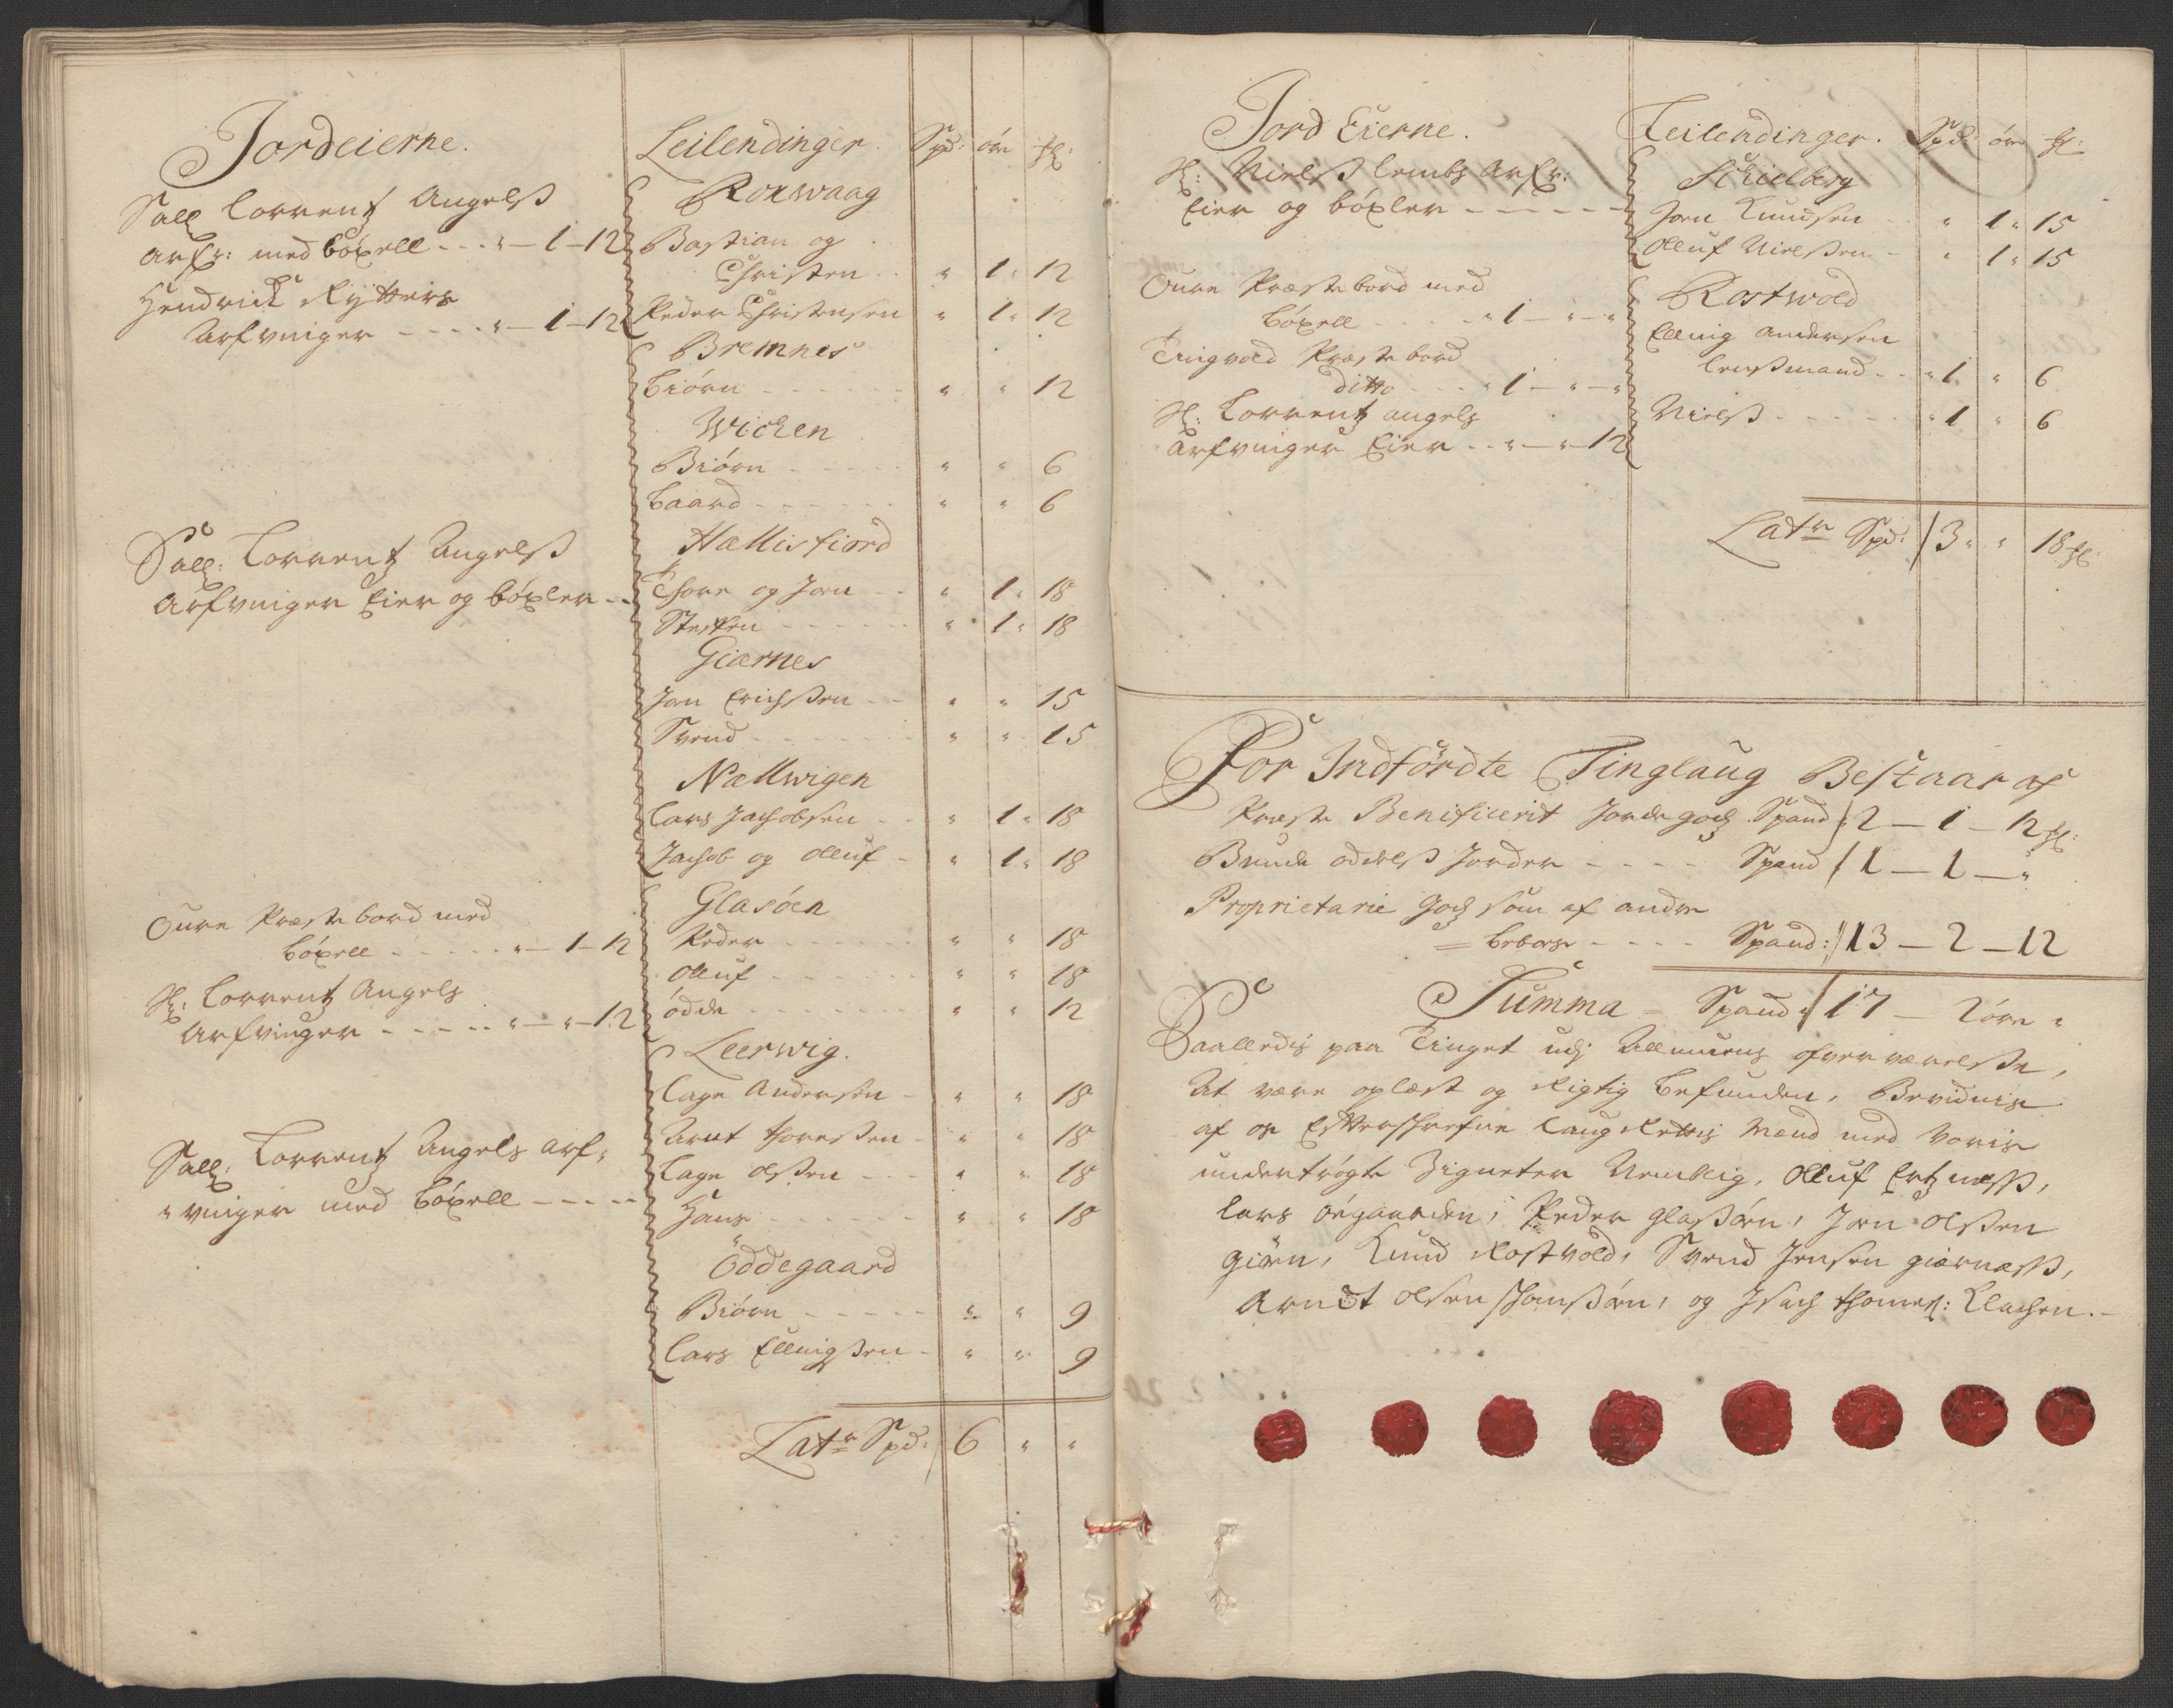 Jordeierne.
Sall Lorrentz Angelß
Arfr: med böxell - - - " — 1 — 12
Hendrick Rytters
Arfvinger - - - - " — 1 — 12
Sall: Lorrentz Angelß
Arfvinger Eier og böxler - -
Oure Præstebord med
böxell - - - - - " — 1 — 12
Sl: Lorrentz Angels
Arfvinger - - - - - " — " — 12
Sall: Lorrentz Angels arf-
" vinger med böxell - - - - -
Leilendinger. Spd: öre
Rokwaag
Bastian og
Christen - - " 1 " 12
Peder Christensen " 1 " 12
Bremnes
Biörn - - - - - " " 12
Wichen
Biörn - - - - - " " 6
Baard - - - - - " " 6
Hallisfiord
Thore og Jon - - " 1 " 18
Steffen - - - - - " 1 " 18
Giærnes
Jon Erichßen - - " " 15
Svend - - - - - " " 15
Nallwigen
Lars Jachobsen - - " 1 " 18
Jachob og Olluf - " 1 " 18
Glasöen
Peder - - - - - " " 18
Olluf - - - - - " " 18
Odde - - - - - " " 12
Leerwig.
Lage Andersen - " " 18
Arnt Thoreßen - " " 18
Lage Olßen - - - " " 18
Hans - - - - - " " 18
Öddegaard
Biörn - - - - - " " 9
Lars Ellingßen - " " 9
Latr Spd: 6 " "
Jord Eierne.
Sl: Nielß Lembs Arfr:
Eier og böxler - - - - -
Oure Præstebord med
böxell - - - - " 1 — " — "
Tingvold Præstebord
ditto - - - " 1 — " — "
Sl: Lorrentz Angels
Arfvinger Eier - - " — " — 12
Leilendinger. Spd: öre
Schielberg
Jon Knudsen - - " 1 " 15
Olluf Nielßen - " 1 " 15
Rostwold
Elling Andersen
Lensmand - - " 1 " 6
Nielß - - - - - " 1 " 6
Latr Spd: / 3 " " 18
For Indfördte Tinglaug Bestaar af
Præste Benificerit Jordegodz Spand / 2 — 1 — 12
Bunde odelß Jorder - - - - Spand / 1 — 1 — "
Proprietarie godz som af andre
= beboes - - - - Spand: / 13 — 2 — 12
Summa = Spand / 17 — 2öre "
Saaledis paa Tinget udj Allmuens ofverværelße,
At være oplæst og Rigtig befunden, Bevidnis
af os Efterschrefne Laug Rettis Mænd med Voris
undertrögte Zigneter Nemblig, Olluf Ertznæß,
Lars öegaarden, Peder Glaßöen, Jon Olßen
Giöen, Knud Rostvold, Svend Jensen Giærnæß,
Arndt Olsen, og Isach Thomes: Klachen. -